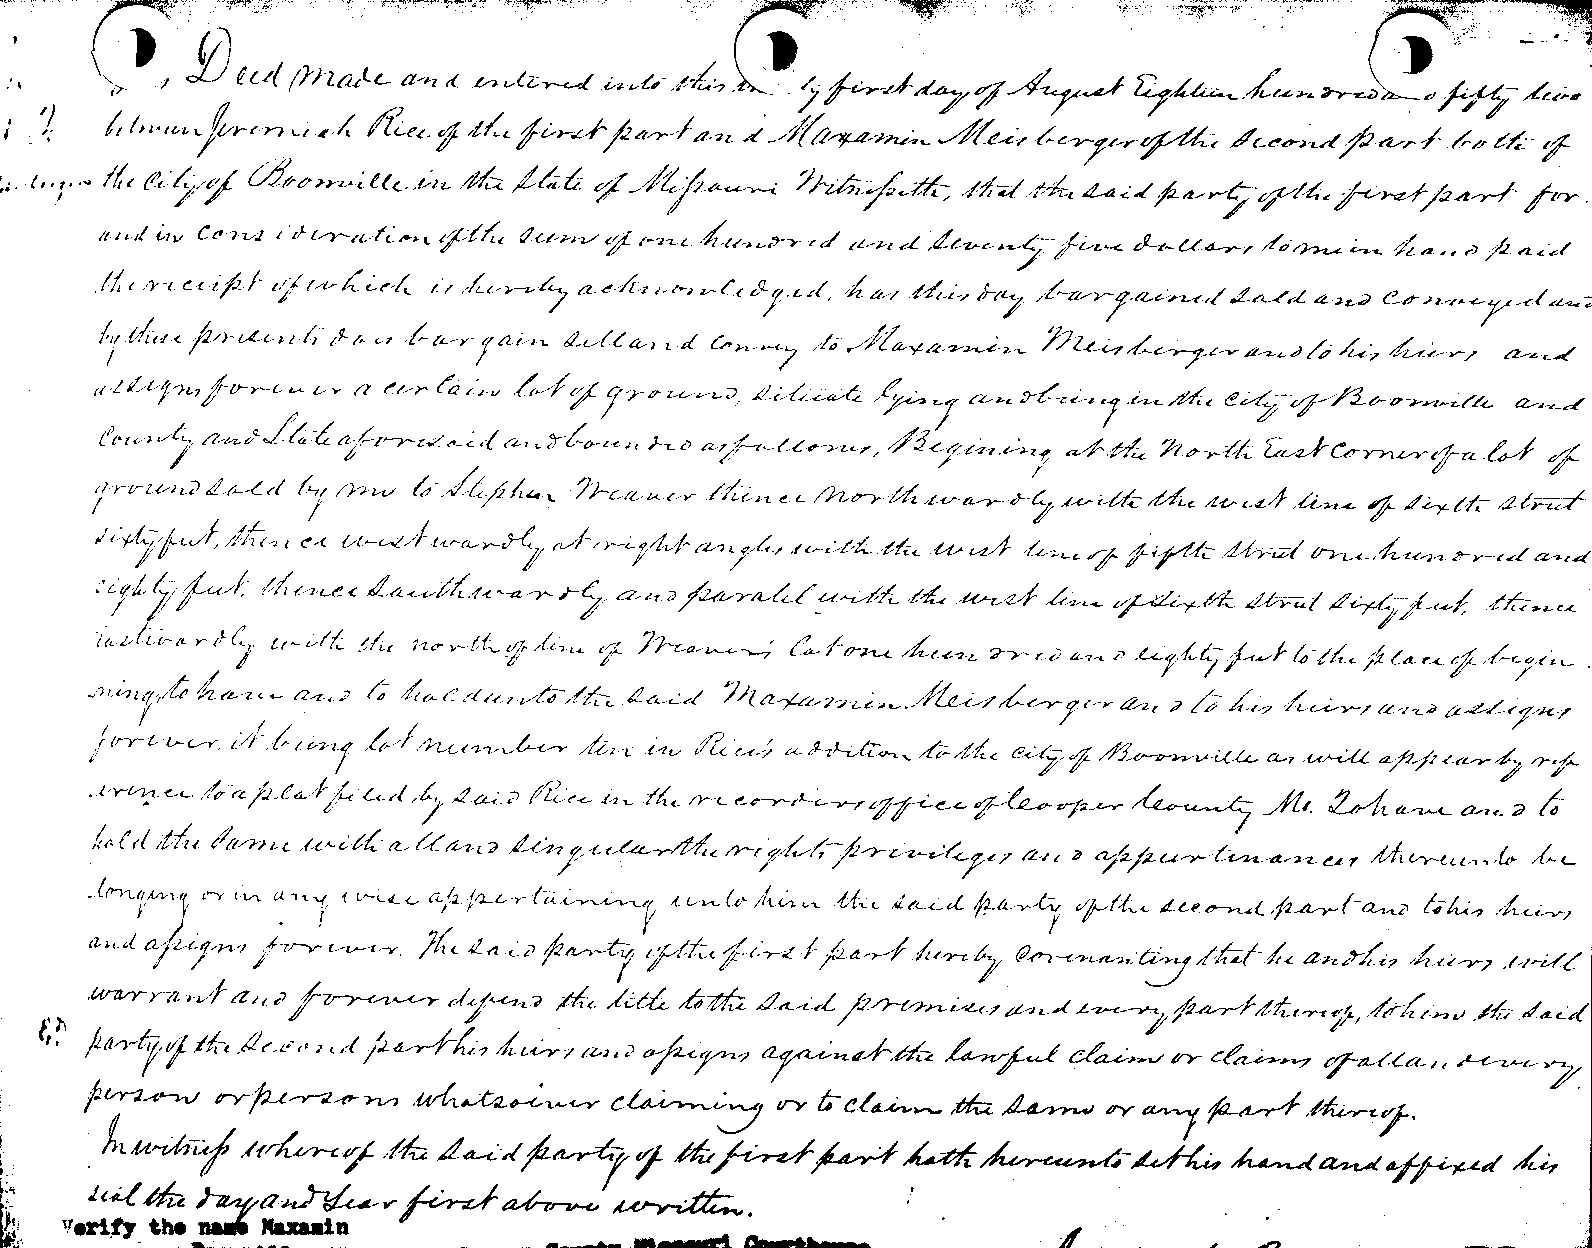 Deed made and entered into this ly first day of August Eighteen hundred and fifty two
between Jeremiah Rice of the first part and Maxamin Meisberger of the second part both of
the City of Boonville in the State of Missouri Witnesseth, that the said party of the first part for
and in consideration of the sum of one hundred and seventy five dollars to me in hand paid
the receipt of which is hereby acknowledged, has this day bargained sold and conveyed and
by these presents does bargain sell and convey to Maxamin Meisberger and to his heirs and
assigns forever a certain lot of ground, situate lying and being in the City of Boonville and
County and State aforesaid and bounded as follows, Begining at the North East Corner of a lot of
ground sold by me to Stephen Weaver thence northwardly with the west line of sixth street
sixty feet, thence westwardly at right angles with the west line of fifth street one hundred and
eighty feet. thence southwardly and paralel with the west line of sixth street sixty feet, thence
eastwardly with the north of line of Weaver's Lot one hundred and eighty feet to the place of begin
ning, to have and to hold unto the said Maxamin Meisberger and to his heirs and assigns
forever, it being lot number ten in Rice's addition to the city of Boonville as will appear by ref
erence to a plat filed by said Rice in the recorders office of Cooper County Mo. To have and to
hold the same with all and singular the rights privileges and appurtenances thereunto be
longing or in any wise appertaining unto him the said party of the second part and to his heirs
and assigns forever. The said party of the first part hereby covenanting that he and his heirs will
warrant and forever defend the title to the said premises and every part thereof, to him the said
party of the second part his heirs and assigns against the lawful claim or claims of all and every
person or persons whatsoever claiming or to claim the same or any part thereof.
In witness whereof the said party of the first part hath hereunto set his hand and affixed his
seal the day and year first above written.
Verify the name Maxamin
County Missouri Courthouse